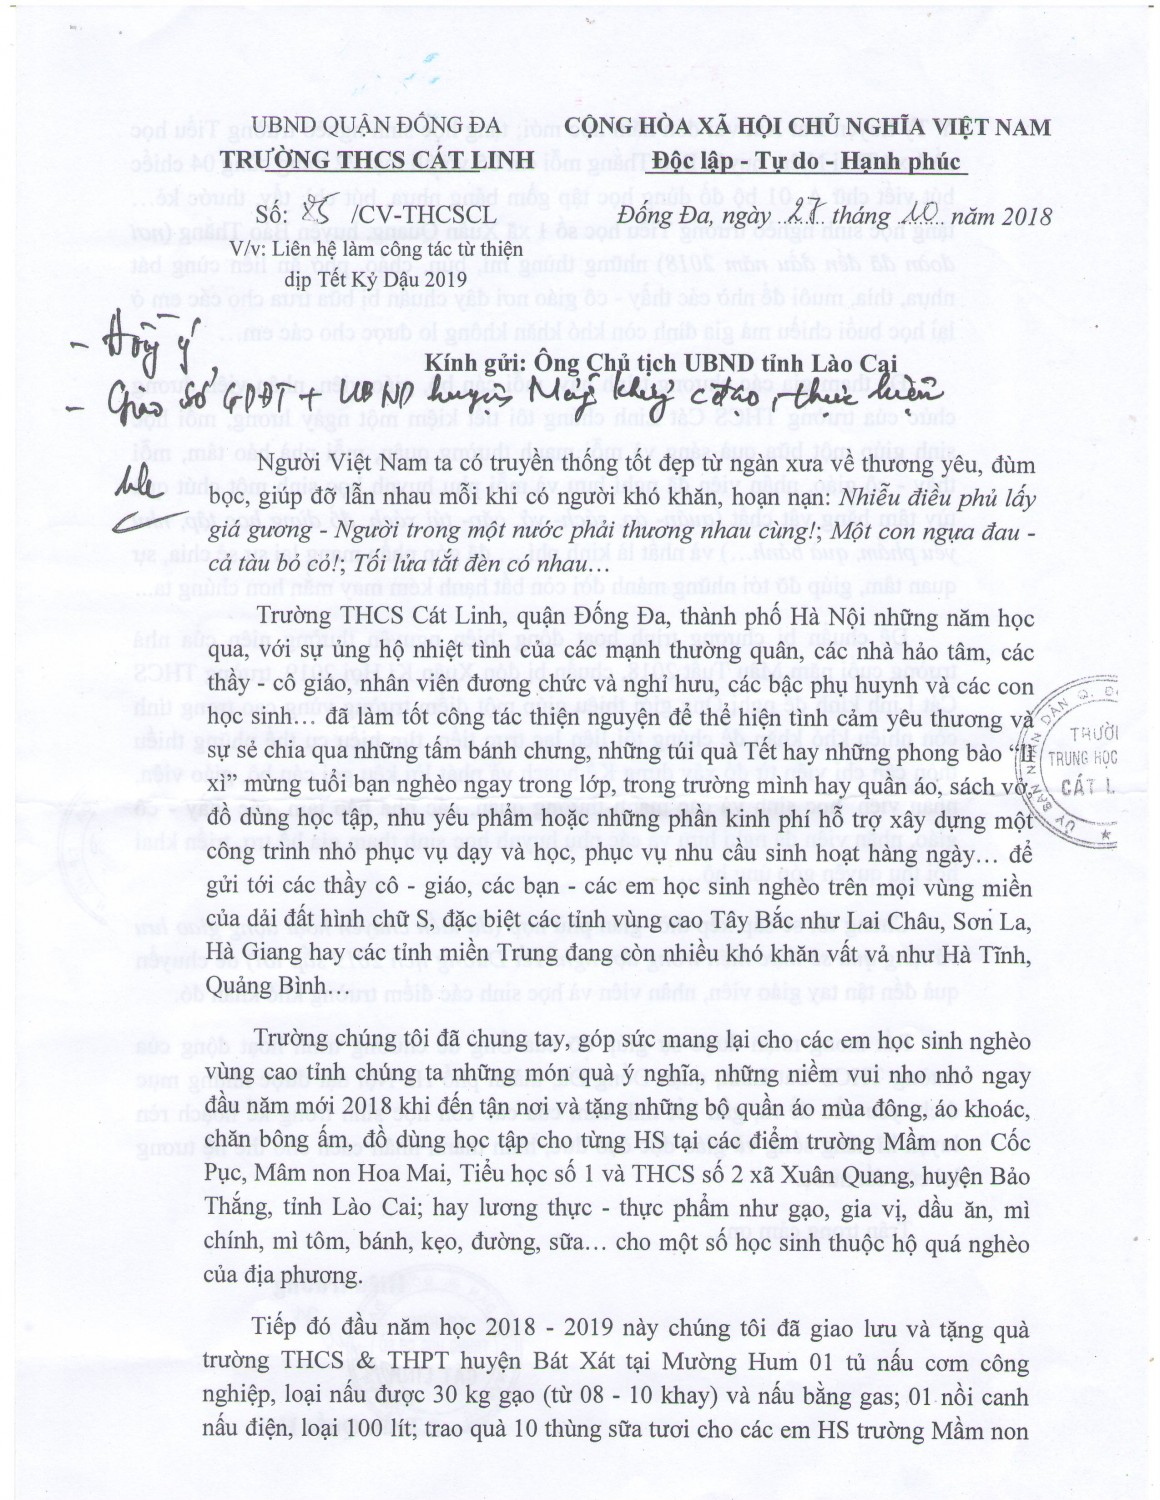 UBND QUẬN ĐỐNG ĐA
TRƯỜNG THCS CÁT LINH
CỘNG HÒA XÃ HỘI CHỦ NGHĨA VIỆT NAM
Độc lập - Tự do - Hạnh phúc
Số: 85 /CV-THCSCL
V/v: Liên hệ làm công tác từ thiện
dịp Tết Kỷ Dậu 2019
Đống Đa, ngày 27 tháng 10 năm 2018
- Đồng ý
Kính gửi: Ông Chủ tịch UBND tỉnh Lào Cai
- Giao sở GDĐT + UBND huyện Mường Khương c/đạo, thực hiện
Người Việt Nam ta có truyền thống tốt đẹp từ ngàn xưa về thương yêu, đùm
bọc, giúp đỡ lẫn nhau mỗi khi có người khó khăn, hoạn nạn: Nhiễu điều phủ lấy
giá gương - Người trong một nước phải thương nhau cùng!; Một con ngựa đau -
cả tàu bỏ cỏ!; Tối lửa tắt đèn có nhau…
Trường THCS Cát Linh, quận Đống Đa, thành phố Hà Nội những năm học
qua, với sự ủng hộ nhiệt tình của các mạnh thường quân, các nhà hảo tâm, các
thầy - cô giáo, nhân viên đương chức và nghỉ hưu, các bậc phụ huynh và các con
học sinh… đã làm tốt công tác thiện nguyện để thể hiện tình cảm yêu thương và
sự sẻ chia qua những tấm bánh chưng, những túi quà Tết hay những phong bào “lì
xì” mừng tuổi bạn nghèo ngay trong lớp, trong trường mình hay quần áo, sách vở,
đồ dùng học tập, nhu yếu phẩm hoặc những phần kinh phí hỗ trợ xây dựng một
công trình nhỏ phục vụ dạy và học, phục vụ nhu cầu sinh hoạt hàng ngày… để
gửi tới các thầy cô - giáo, các bạn - các em học sinh nghèo trên mọi vùng miền
của dải đất hình chữ S, đặc biệt các tỉnh vùng cao Tây Bắc như Lai Châu, Sơn La,
Hà Giang hay các tỉnh miền Trung đang còn nhiều khó khăn vất vả như Hà Tĩnh,
Quảng Bình…
TRƯỜ
TRUNG HỌC
CÁT L
Trường chúng tôi đã chung tay, góp sức mang lại cho các em học sinh nghèo
vùng cao tỉnh chúng ta những món quà ý nghĩa, những niềm vui nho nhỏ ngay
đầu năm mới 2018 khi đến tận nơi và tặng những bộ quần áo mùa đông, áo khoác,
chăn bông ấm, đồ dùng học tập cho từng HS tại các điểm trường Mầm non Cốc
Pục, Mâm non Hoa Mai, Tiểu học số 1 và THCS số 2 xã Xuân Quang, huyện Bảo
Thắng, tỉnh Lào Cai; hay lương thực - thực phẩm như gạo, gia vị, dầu ăn, mì
chính, mì tôm, bánh, kẹo, đường, sữa… cho một số học sinh thuộc hộ quá nghèo
của địa phương.
Tiếp đó đầu năm học 2018 - 2019 này chúng tôi đã giao lưu và tặng quà
trường THCS & THPT huyện Bát Xát tại Mường Hum 01 tủ nấu cơm công
nghiệp, loại nấu được 30 kg gạo (từ 08 - 10 khay) và nấu bằng gas; 01 nồi canh
nấu điện, loại 100 lít; trao quà 10 thùng sữa tươi cho các em HS trường Mầm non